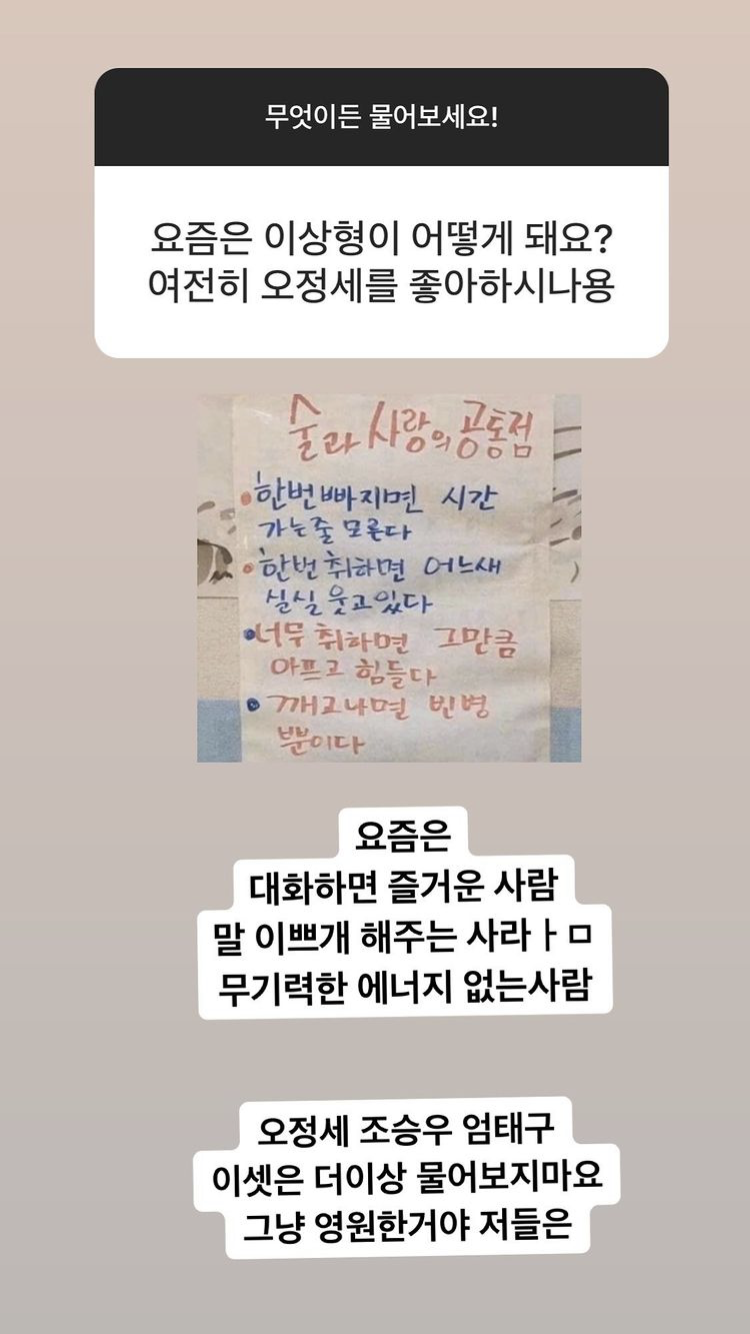 무엇이든 물어보세요!
요즘은 이상형이 어떻게 돼요?
여전히 오정세를 좋아하시나용
술과 사랑의 공통점
한번 빠지면 시간
가는줄 모른다
한번 취하면 어느새
실실 웃고있다
너무 취하면 그만큼
아프고 힘들다
깨고나면 빈병
뿐이다
요즘은
대화하면 즐거운 사람
말 이쁘개 해주는 사라ㅏㅁ
무기력한 에너지 없는사람
오정세 조승우 엄태구
이셋은 더이상 물어보지마요
그냥 영원한거야 저들은